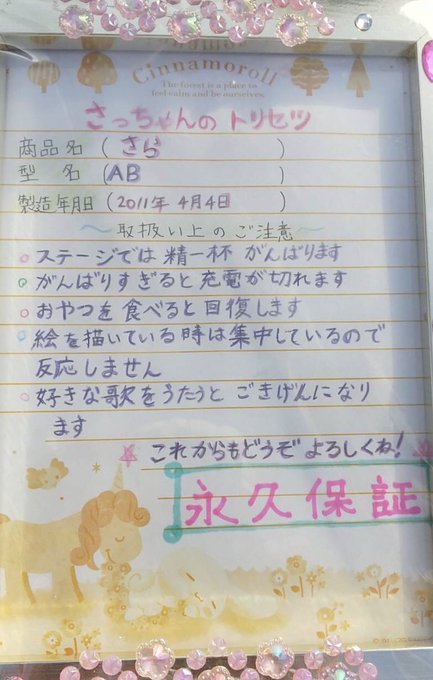 Cinnamoroll
The forest is a place to
feel calm and be ourselves.
さっちゃんの トリセツ
商品名 ( さら )
型 名 (AB )
製造年月日 (2011年 4月4日 )
〜 取扱い上のご注意 〜
○ ステージでは 精一杯 がんばります
○ がんばりすぎると 充電が切れます
○ おやつを 食べると 回復します
○ 絵を描いている時は集中しているので
反応しません
○ 好きな歌をうたうと ごきげんになり
ます
☆ これからもどうぞ よろしくね! ☆
永久保証